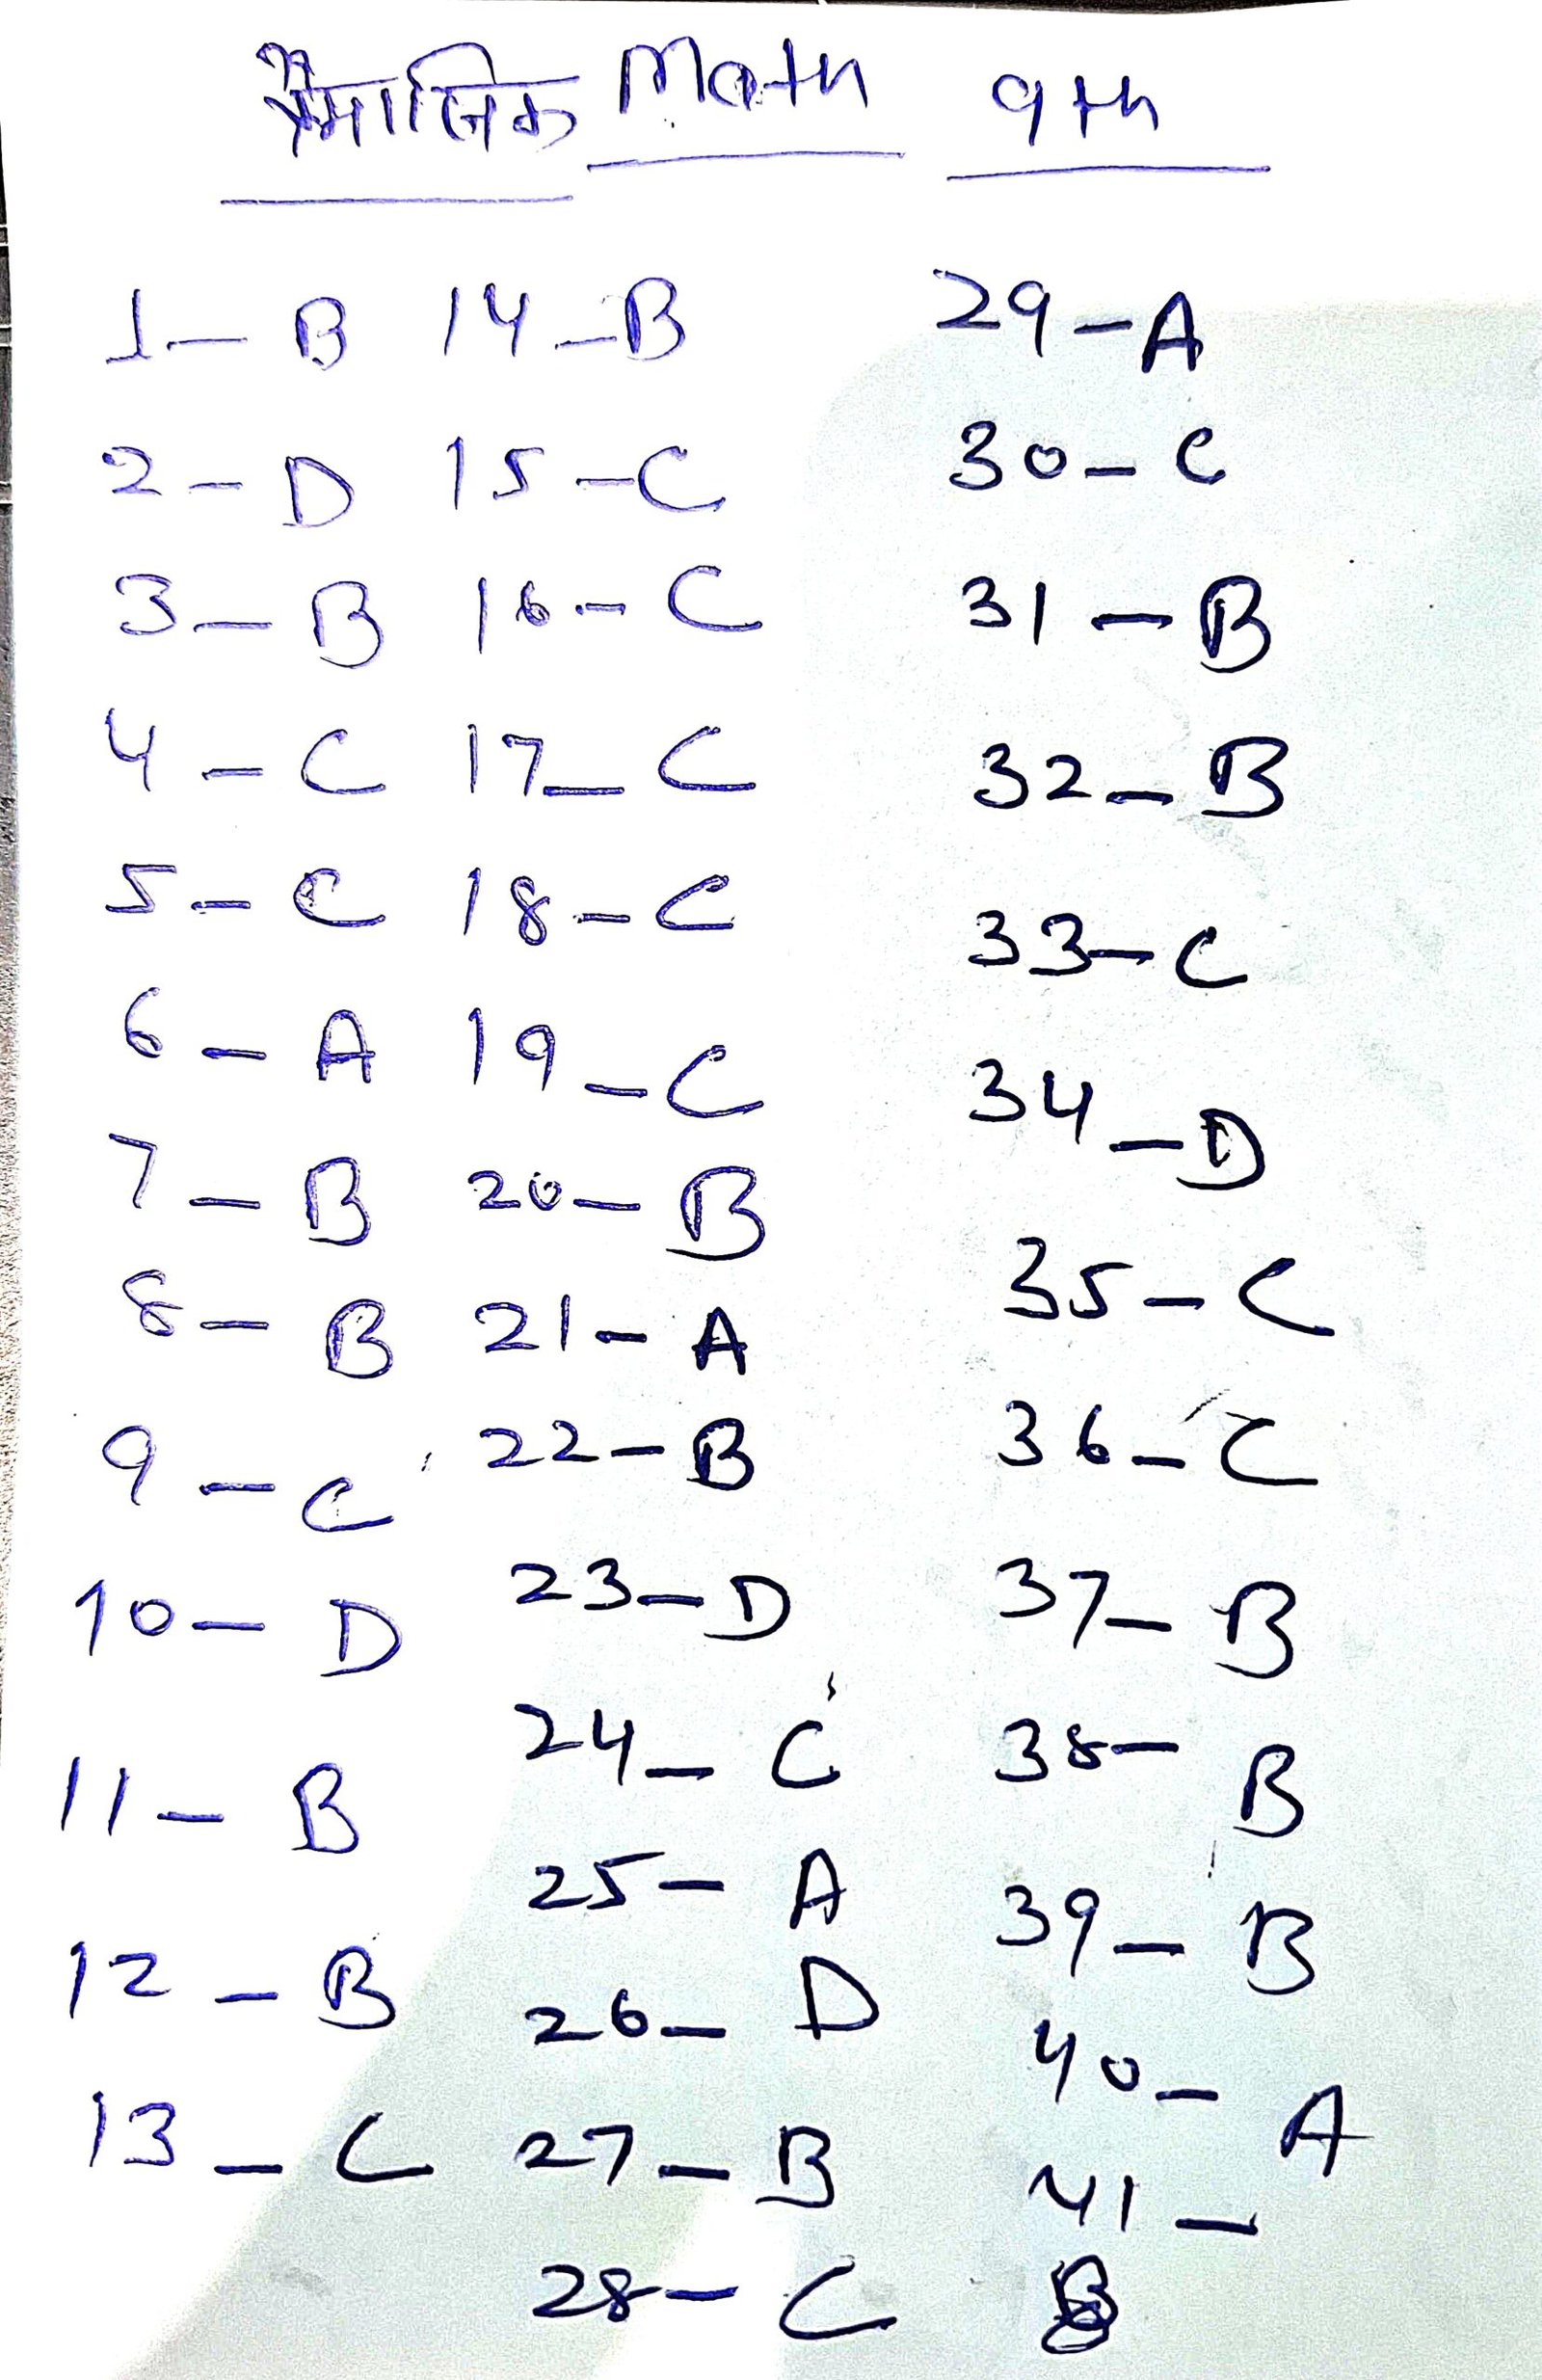 त्रैमासिक Math 9th
1 - B
2 - D
3 - B
4 - C
5 - C
6 - A
7 - B
8 - B
9 - C
10 - D
11 - B
12 - B
13 - C
14 - B
15 - C
16 - C
17 - C
18 - C
19 - C
20 - B
21 - A
22 - B
23 - D
24 - C
25 - A
26 - D
27 - B
28 - C
29 - A
30 - C
31 - B
32 - B
33 - C
34 - D
35 - C
36 - C
37 - B
38 - B
39 - B
40 - A
41 -
B